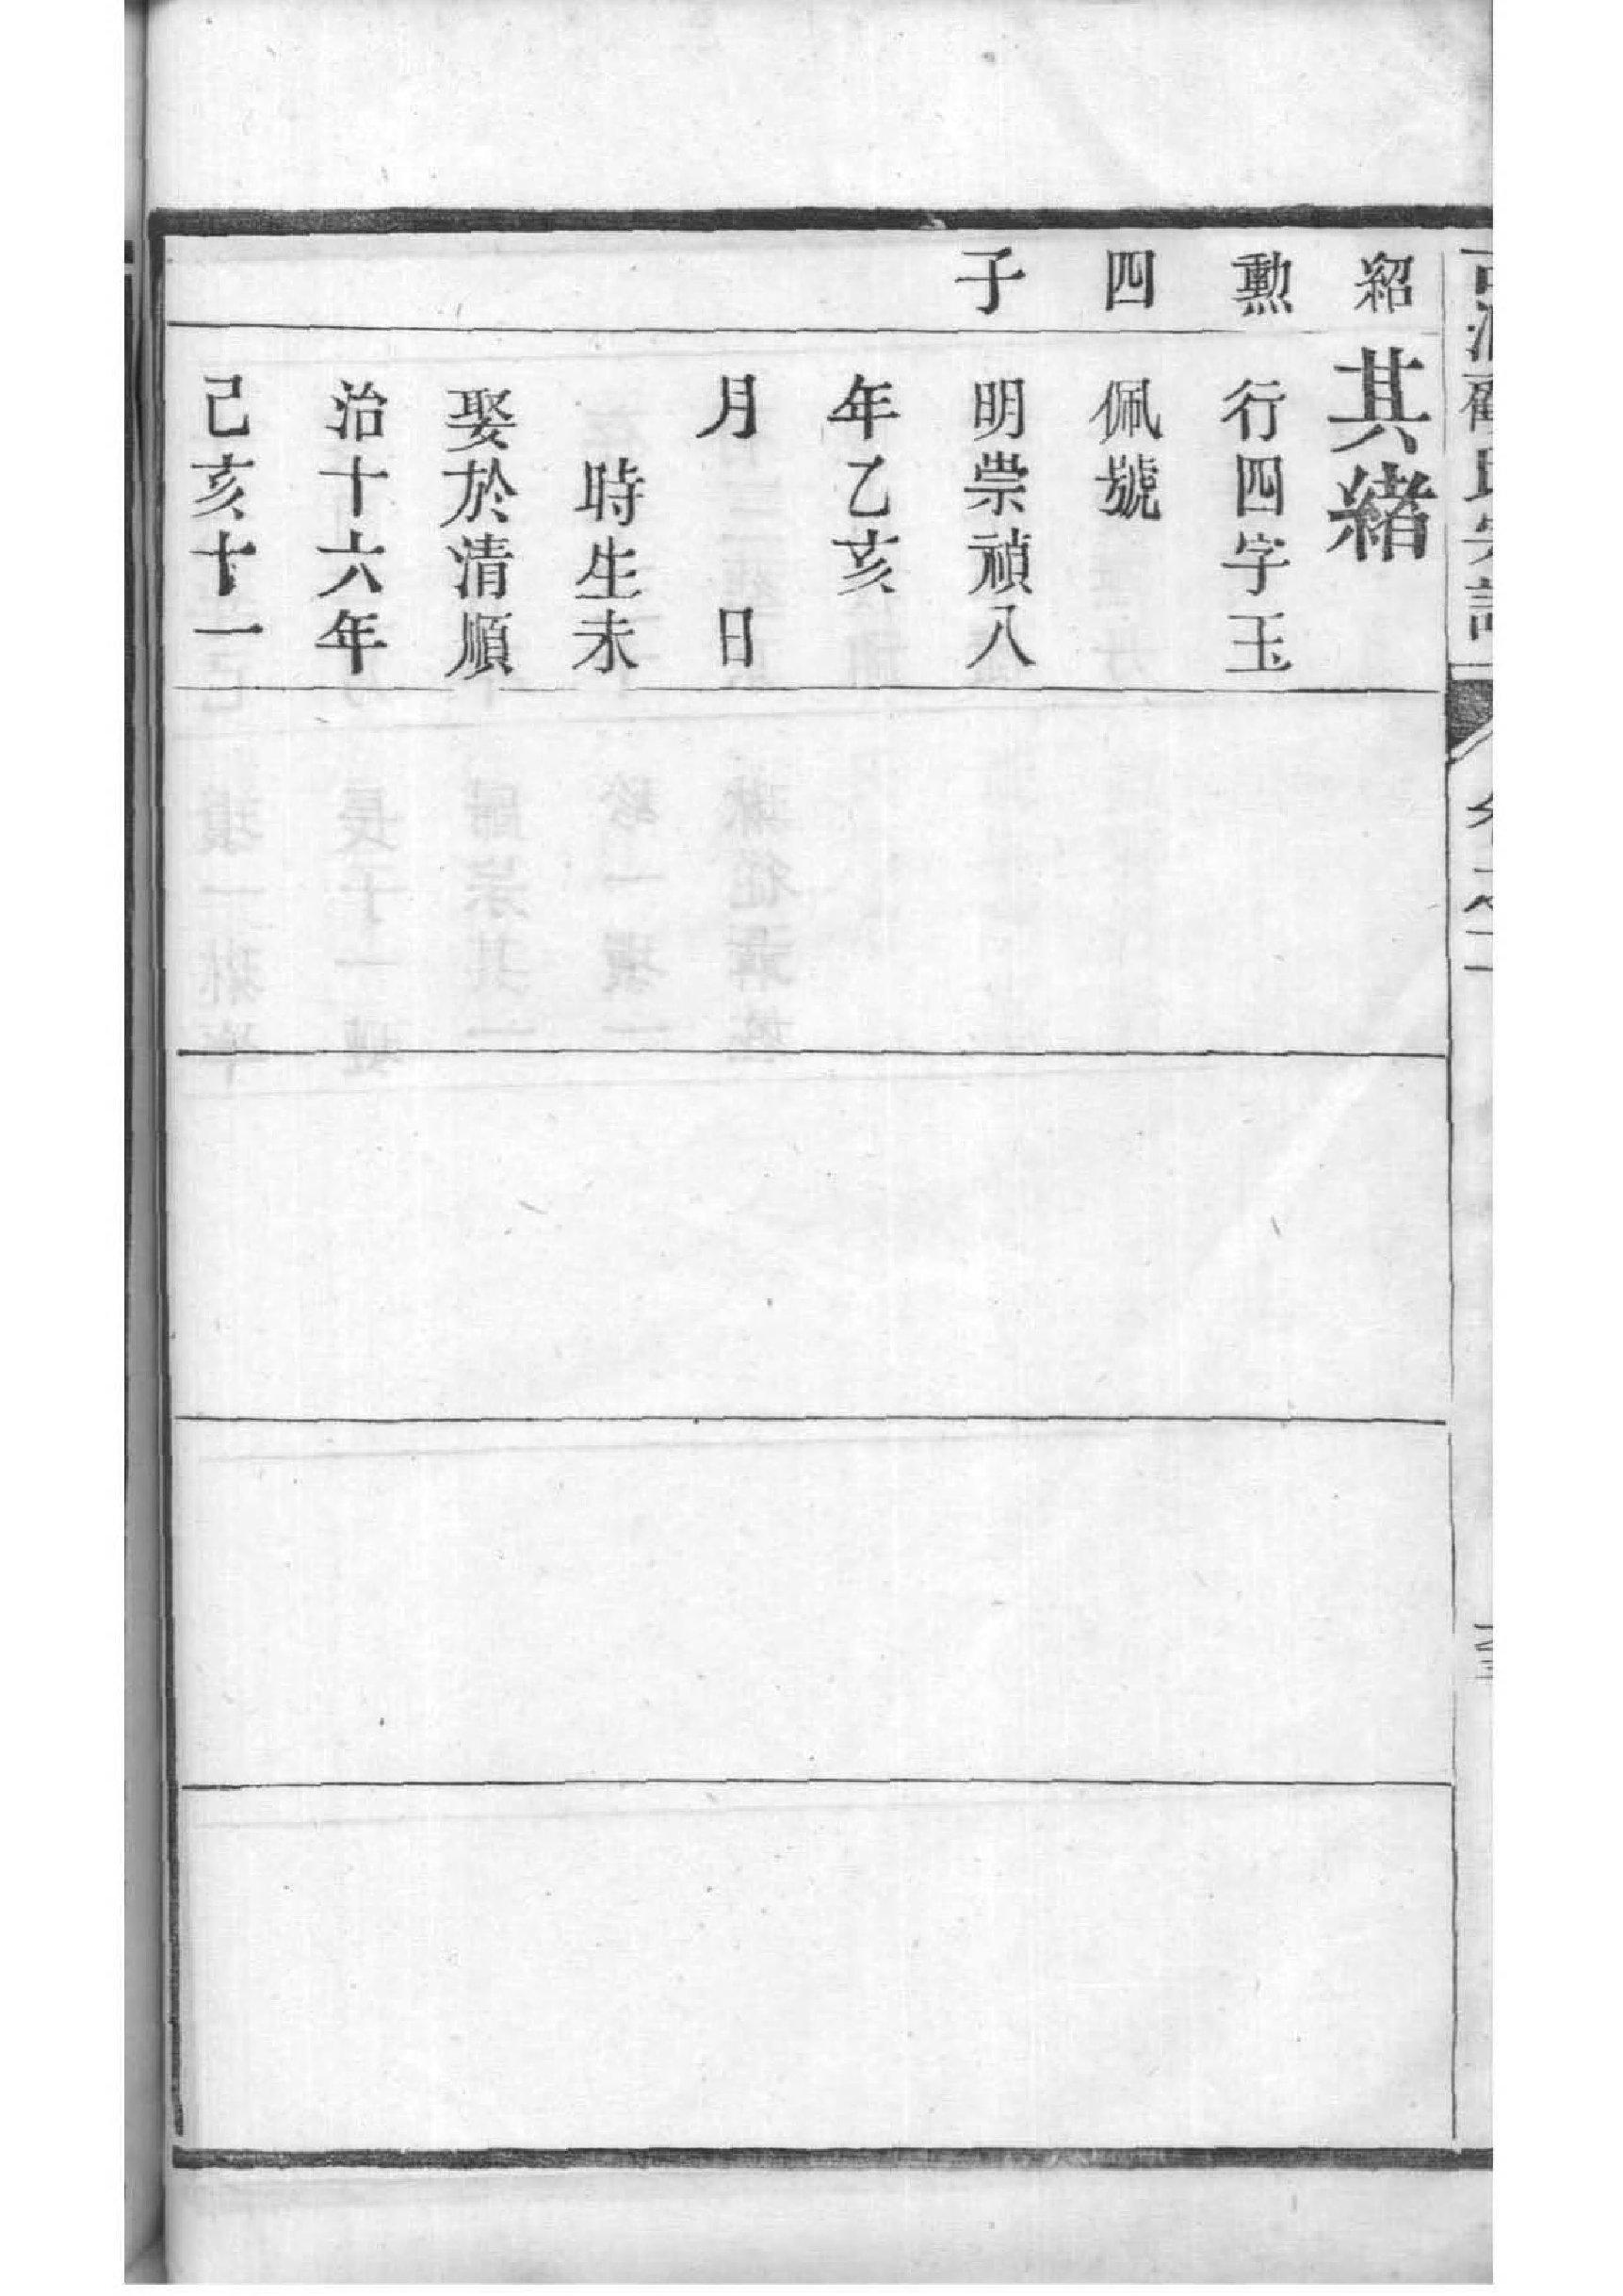 紹
勲
四
子
其緒
行四字玉
佩號
明崇禎八
年乙亥
月　日
時生未
娶於清順
治十六年
己亥十一